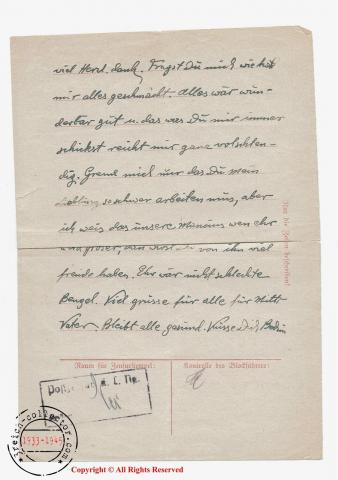 viel Herzl. dank. Fragst Du mich wie hat
mir alles geschmäckt. Alles wär wun-
derbar gut u. das was Du mir immer
schickst reicht mir ganz volständ-
dig. mich nur das Du mein
so schwer arbeiten mus, aber
ich weis das unsere wen ehr
und gröser, dan wirst Du von ihn viel
freude haben. Ehr wär nicht schlechte
Bengel. Viel grüsse für alle für Mutt
Vater. Bleibt alle gesund. Küsse Dich,
Nur die Zeilen beschreiben!
Raum für Zensurstempel:
Kontrolle des Blockführers:
3reich-collector.com
1933-1945
Copyright © All Rights Reserved